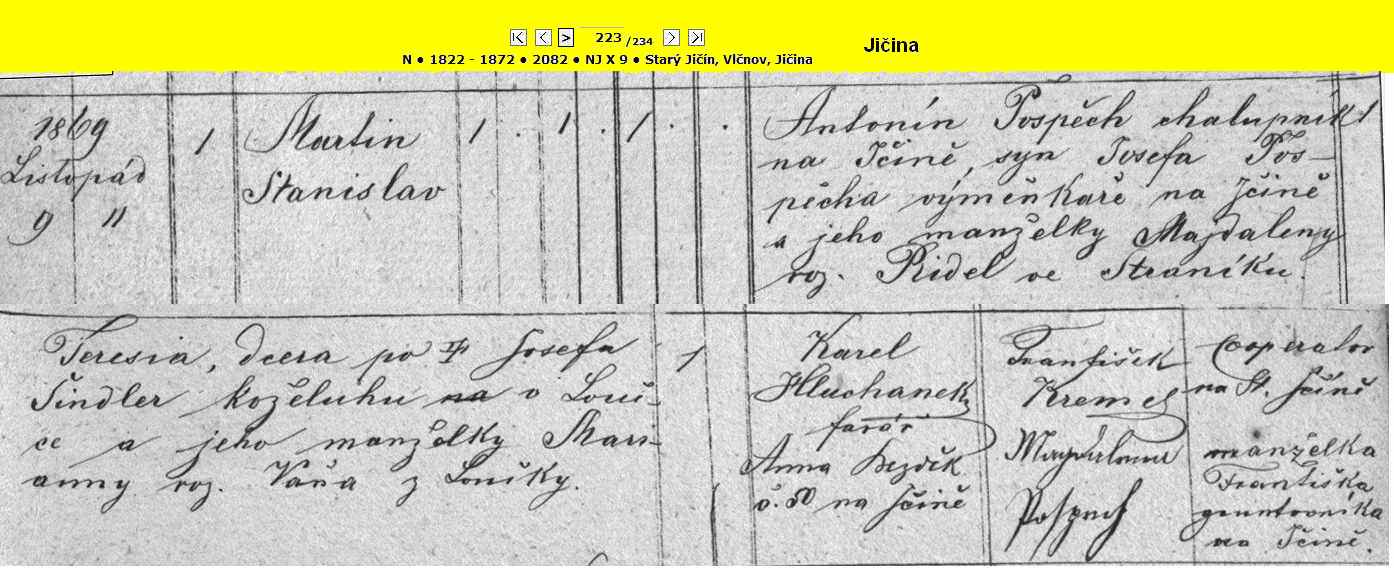 223 /234
Jičina
N • 1822 - 1872 • 2082 • NJ X 9 • Starý Jičín, Vlčnov, Jičina
1869
Listopád
9 11
1
Martin
Stanislav
1 . 1 . 1 . .
Antonín Pospěch chalupník 1
na Jčině, syn Josefa Pos-
pěcha výměňkaře na Jčině
a jeho manželky Majdaleny
roz. Ridel ve Straníku.
Teresia, dcera po Josefa
Šindler koželuhu na o Louč-
ce a jeho manželky Mari-
anny roz. Váňa z Loučky.
1
Karel
Hluchanek
farář
Anna Bezděk
č. 50 na Jčině
František
Kremel
Magdalena
Pospech
Cooperator
na St. Jčině
manželka
Františka
gruntovníka
na Jčině.